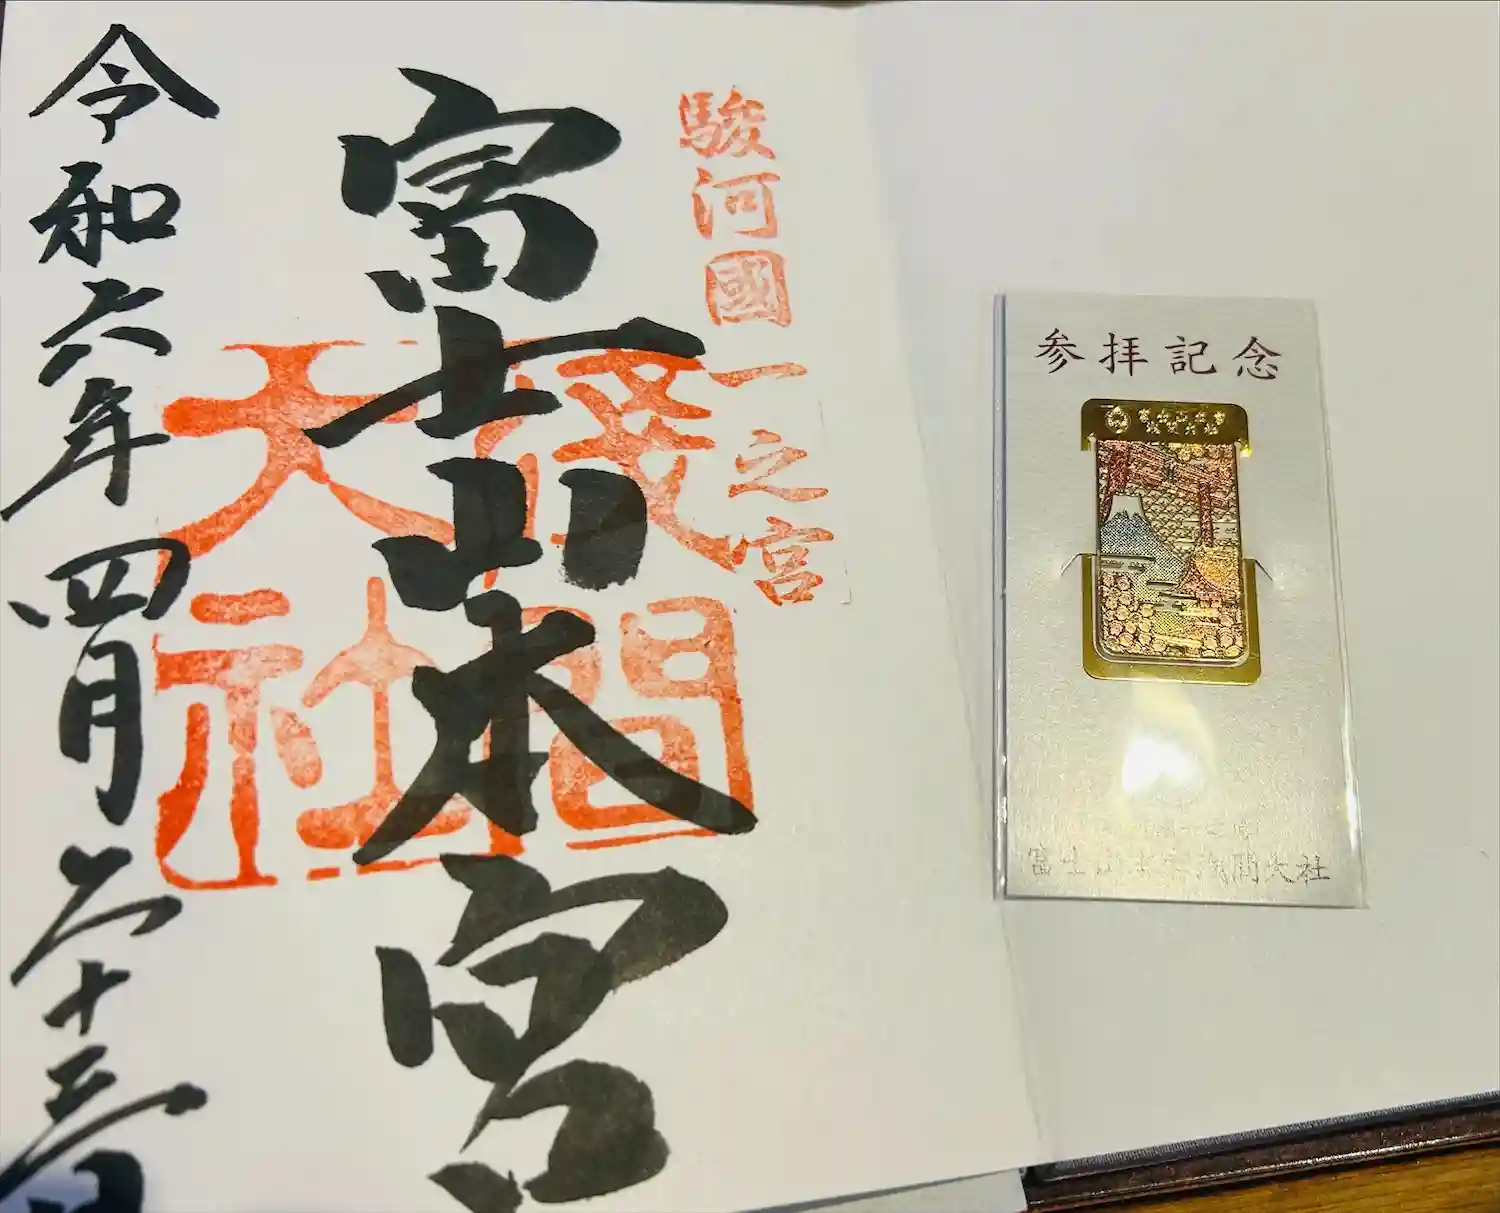 駿河國一之宮
富士山本宮
淺間
大社
令和六年四月二十三日
参拝記念
富士山本宮浅間大社